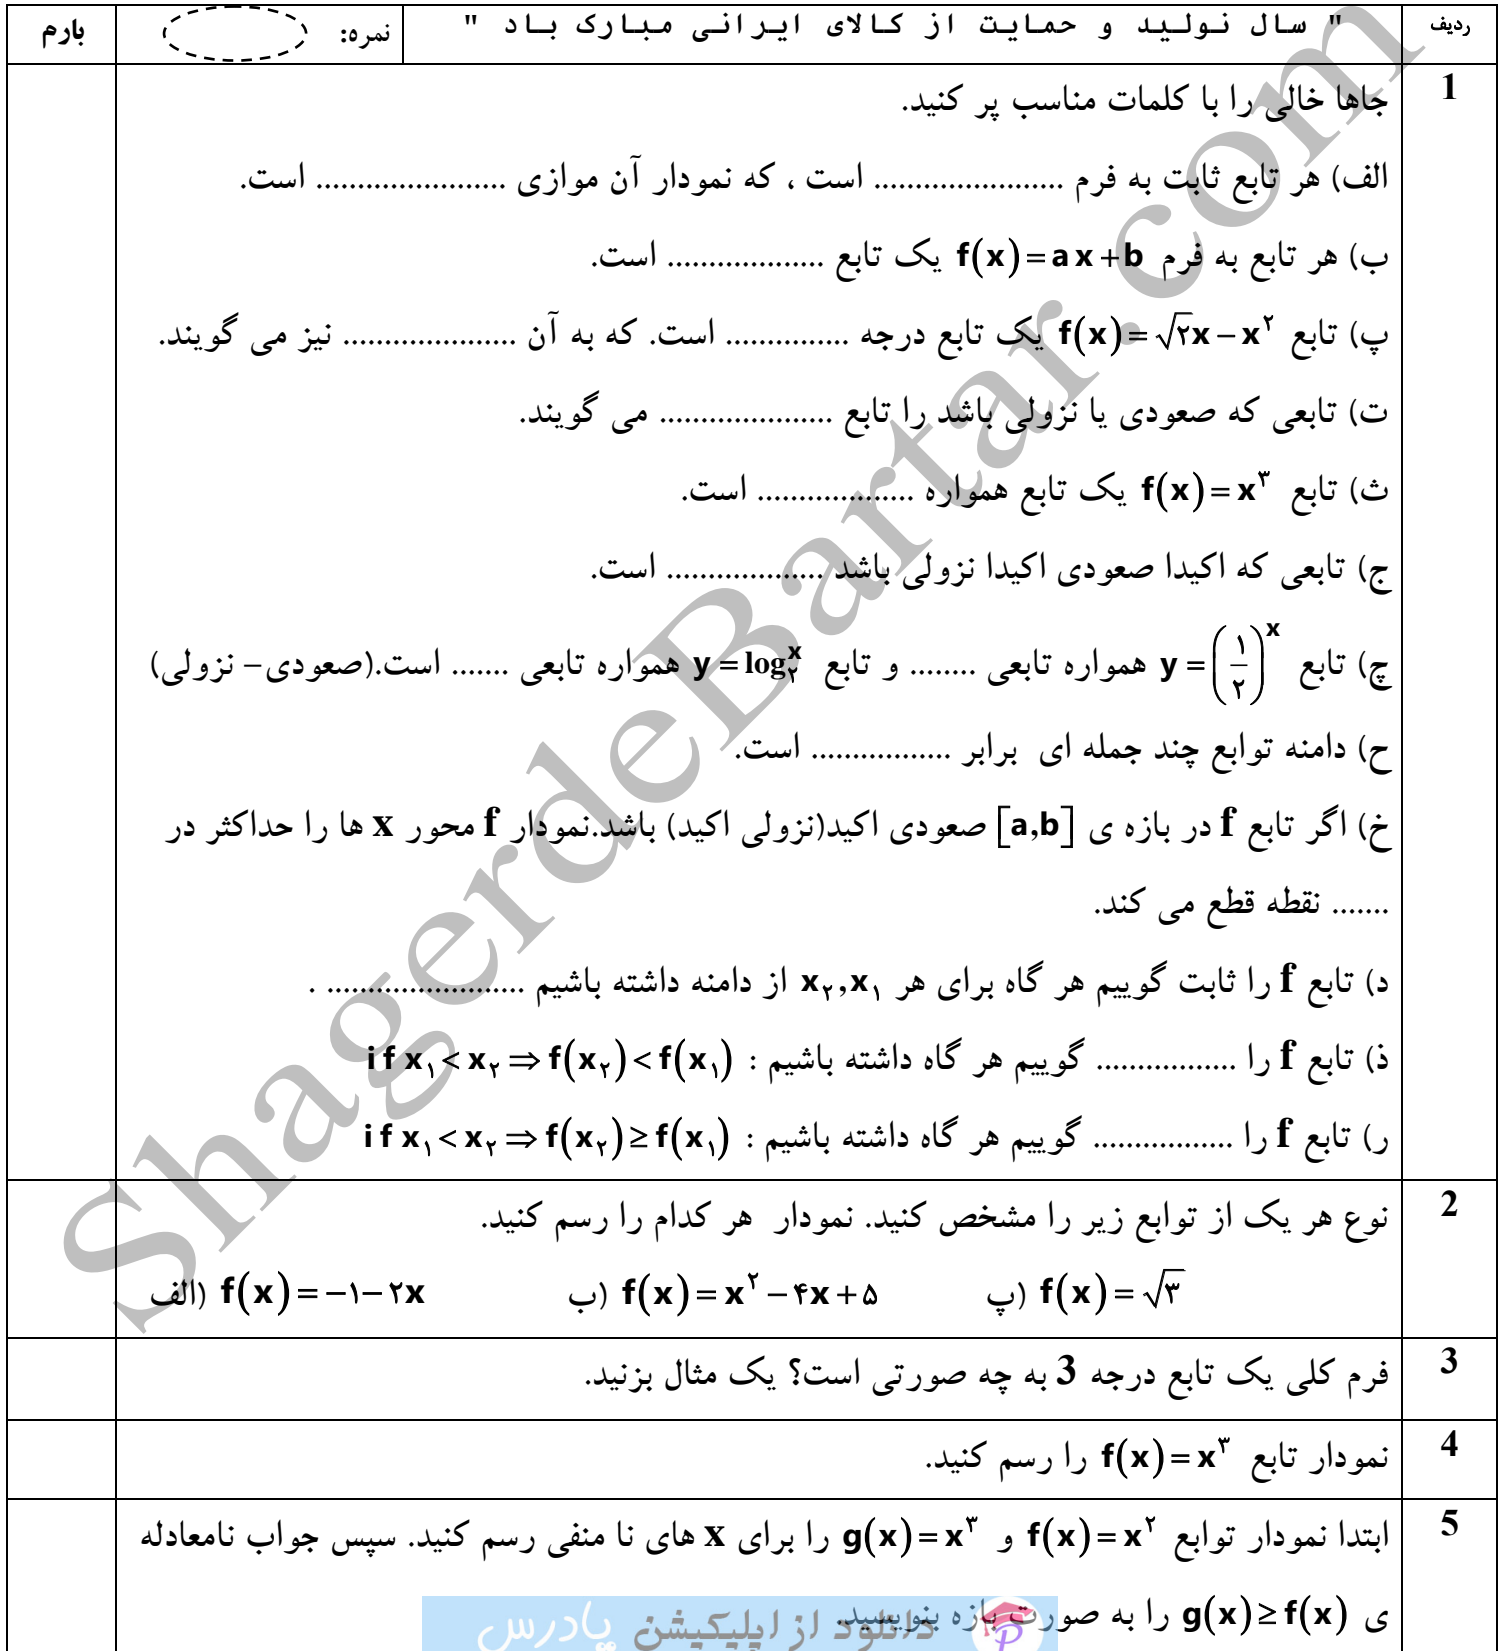 ردیف " سال نولید و حمایت از کالای ایرانی مبارک باد " نمره: بارم
1 جاها خالی را با کلمات مناسب پر کنید.
الف) هر تابع ثابت به فرم ....................... است ، که نمودار آن موازی ....................... است.
ب) هر تابع به فرم f(x)=ax+b یک تابع ................... است.
پ) تابع f(x)=√۲x−x^۲ یک تابع درجه ............... است. که به آن ..................... نیز می گویند.
ت) تابعی که صعودی یا نزولی باشد را تابع ..................... می گویند.
ث) تابع f(x)=x^۳ یک تابع همواره ................... است.
ج) تابعی که اکیدا صعودی اکیدا نزولی باشد ................... است.
چ) تابع y=(۱/۲)^x همواره تابعی ........ و تابع y=log_۲^x همواره تابعی ....... است.(صعودی- نزولی)
ح) دامنه توابع چند جمله ای برابر ................. است.
خ) اگر تابع f در بازه ی [a,b] صعودی اکید(نزولی اکید) باشد.نمودار f محور x ها را حداکثر در
....... نقطه قطع می کند.
د) تابع f را ثابت گوییم هر گاه برای هر x_۲,x_۱ از دامنه داشته باشیم ........................ .
ذ) تابع f را ................. گوییم هر گاه داشته باشیم : if x_۱<x_۲⇒f(x_۲)<f(x_۱)
ر) تابع f را ................. گوییم هر گاه داشته باشیم : if x_۱<x_۲⇒f(x_۲)≥f(x_۱)
2 نوع هر یک از توابع زیر را مشخص کنید. نمودار هر کدام را رسم کنید.
الف) f(x)=−۱−۲x ب) f(x)=x^۲−۴x+۵ پ) f(x)=√۳
3 فرم کلی یک تابع درجه 3 به چه صورتی است؟ یک مثال بزنید.
4 نمودار تابع f(x)=x^۳ را رسم کنید.
5 ابتدا نمودار توابع f(x)=x^۲ و g(x)=x^۳ را برای x های نا منفی رسم کنید. سپس جواب نامعادله
ی g(x)≥f(x) را به صورت بازه بنویسید.
دانلود از اپلیکیشن پادرس
ShagerdeBartar.com